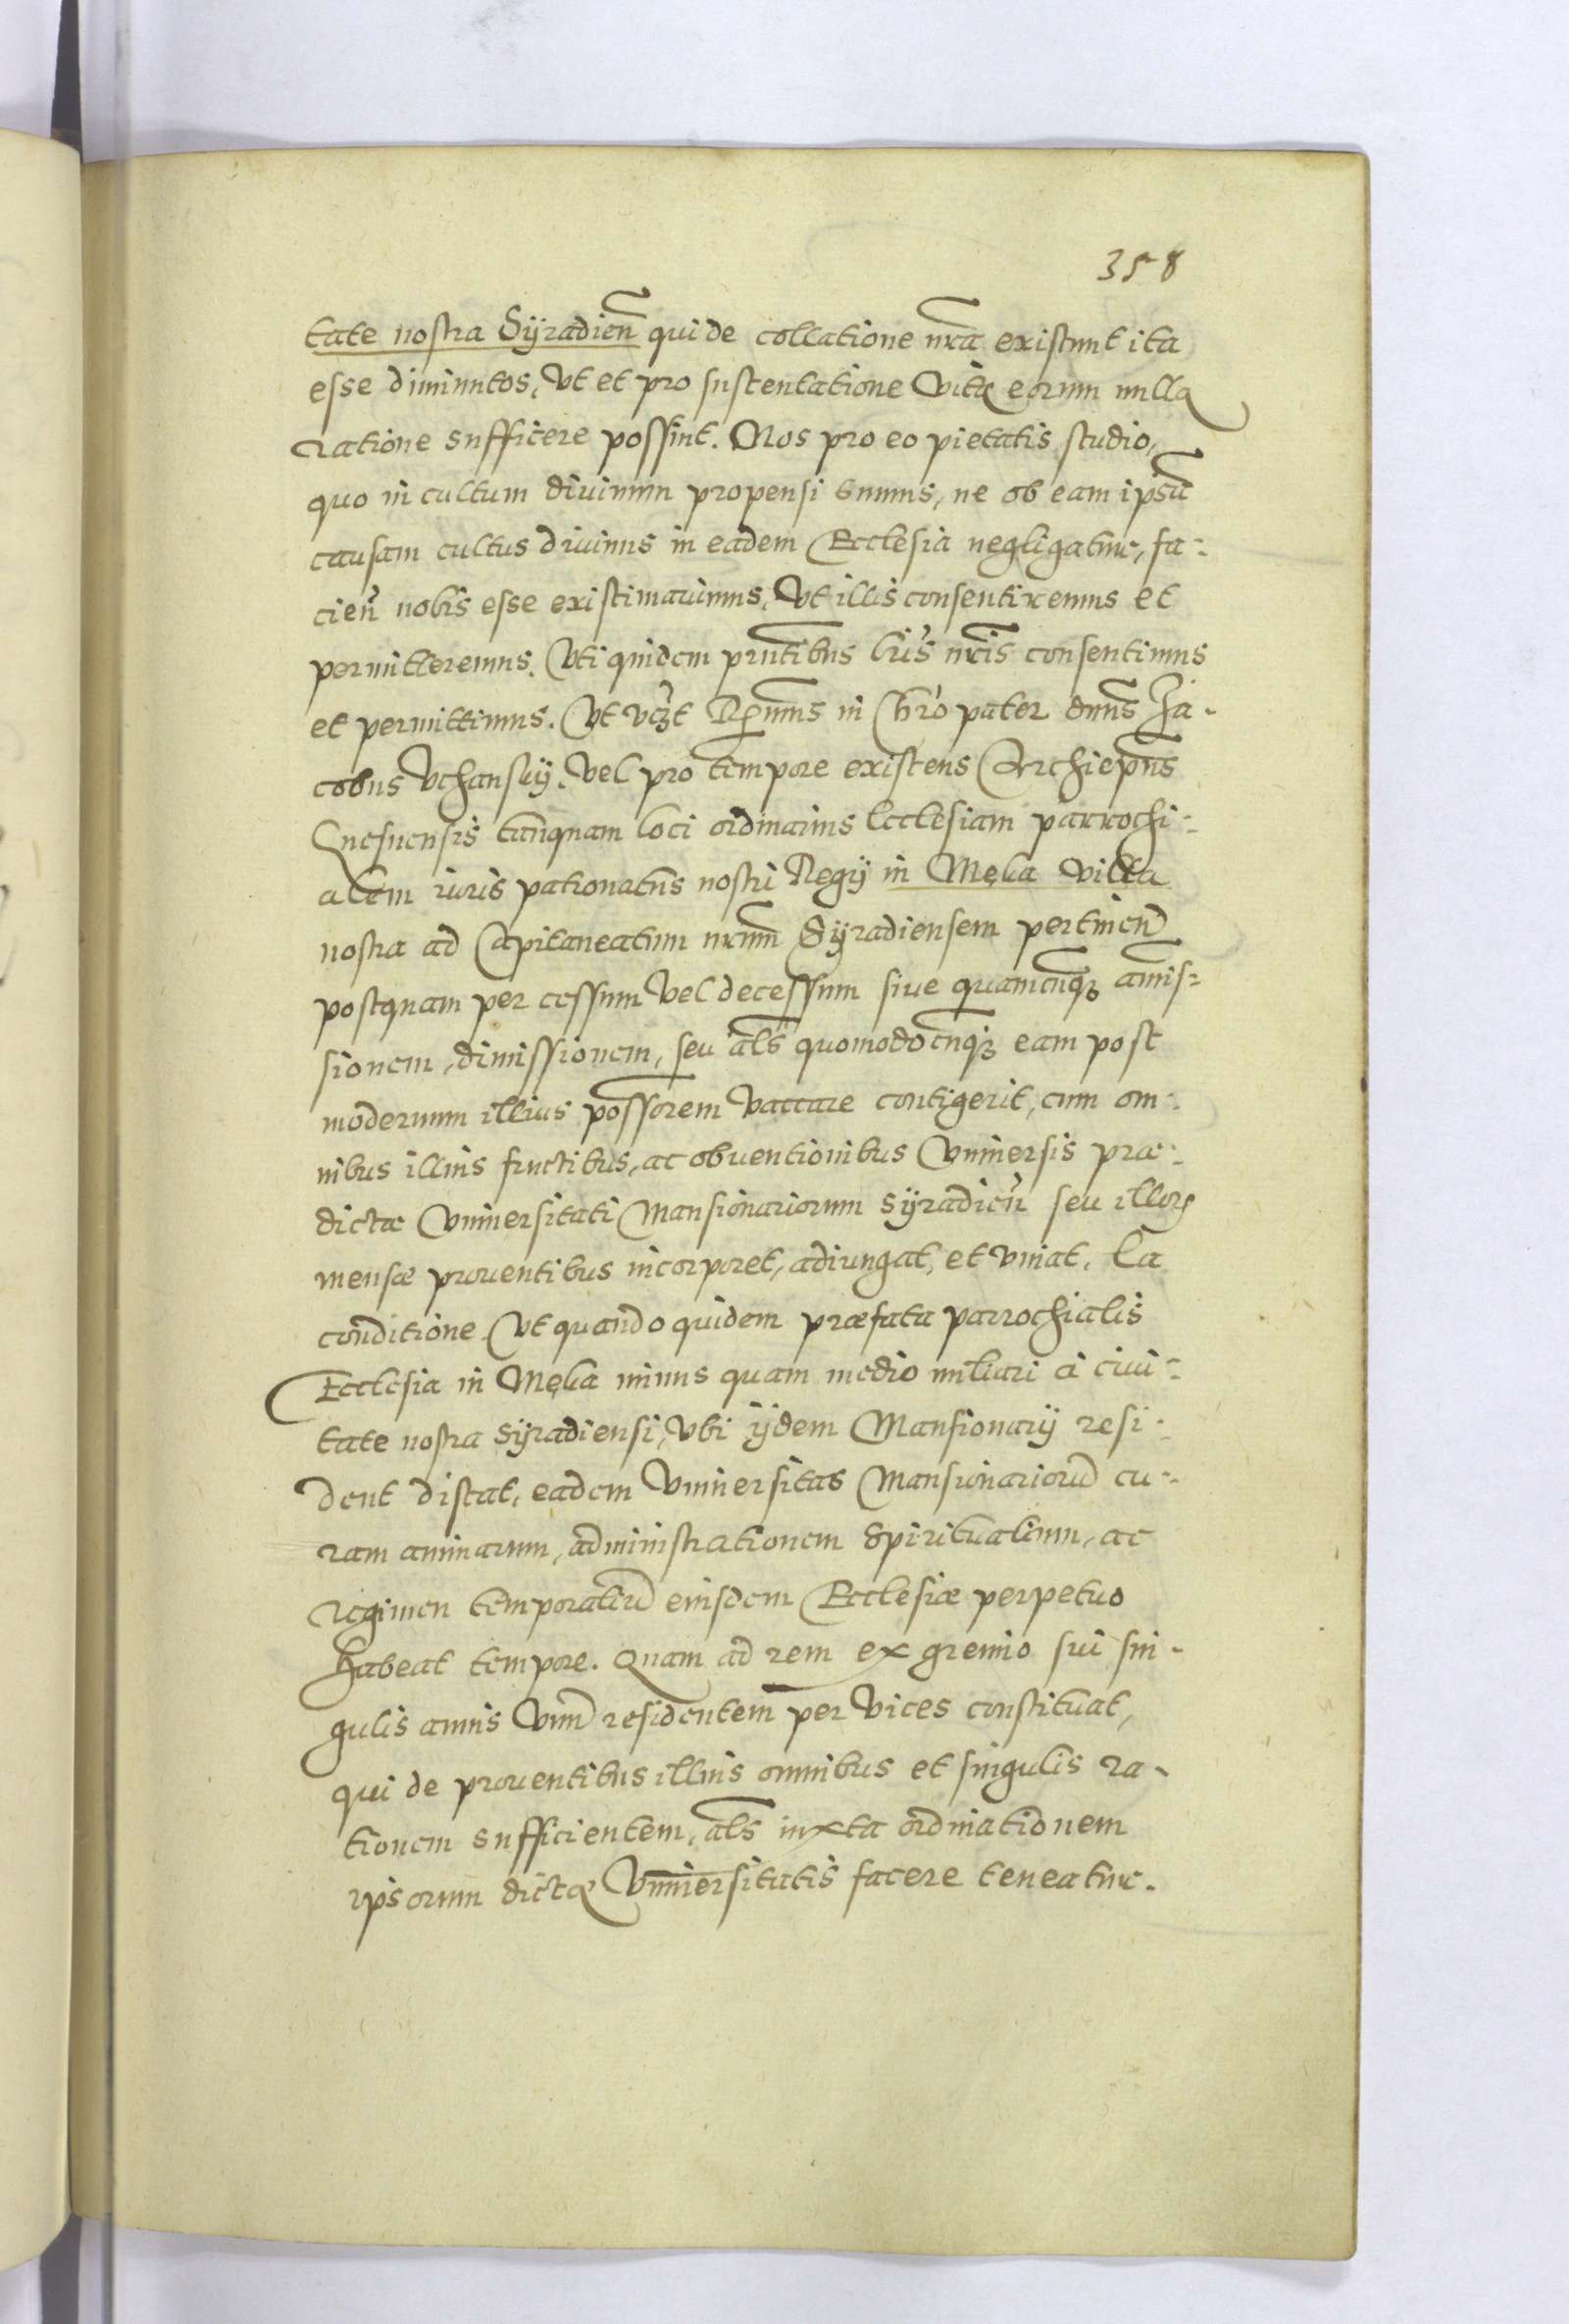 358
tate nostra Syradien̄ qui de collatione nr̃a existunt ita
esse diminutos, Vt et pro sustentatione Vitę eorum nulla
ratione sufficere possint. Nos pro eo pietatis studio,
quo in cultum diuinum propensi sumus, ne ob eam ipsũ
causam cultus diuinus in eadem Ecclesia negligatur, fa-:
cieñ nobis esse existimauimus, Vt illis consentiremus et
permitteremus. Vti quidem pñtibus lr̃is nr̃is consentimus
et permittimus. Vt vcꝫt Rṽmus in Chrõ pater dñus Ja-
cobus Vchansky, Vel pro tempore existens Archiepñs
Gnesnensis tanquam loci ordinarius Ecclesiam parrochi-:
alem iuris patronatus nostri Regÿ in Męka villa
nostra ad Capitaneatum nr̃um Syradiensem pertineñ
postquam per cessum Vel decessum siue quamcunqꝫ amis-:
sionem, dimissionem, seu als̃ quomodocunqꝫ eam post
modernum illius possorem Vaccare contigerit, cum om-:
nibus illius fructibus, ac obuentionibus Vniuersis præ-:
dictæ Vniuersitati Mansionariorum Syradieñ seu illorꝝ
mensæ prouentibus incorporet, adiungat, et vniat. Ea
conditione Vt quando quidem præfata parrochialis
Ecclesia in Męka minus quam medio miliari à ciui-:
tate nostra Syradiensi, Vbi ÿdem Mansionarÿ resi-:
dent distat, eadem Vniuersitas Mansionariorũ cu-:
ram animarum, administrationem Spiritualium, ac
regimen temporaliũ eiusdem Ecclesiæ perpetuo
habeat tempore. Quam ad rem ex gremio sui sin-
gulis annis Vnũ residentem per Vices constituat,
qui de prouentibus illius omnibus et singulis ra-
tionem sufficientem, als̃ iuxta ordinationem
ipsorum dictę Vniuersitatis facere teneatur.